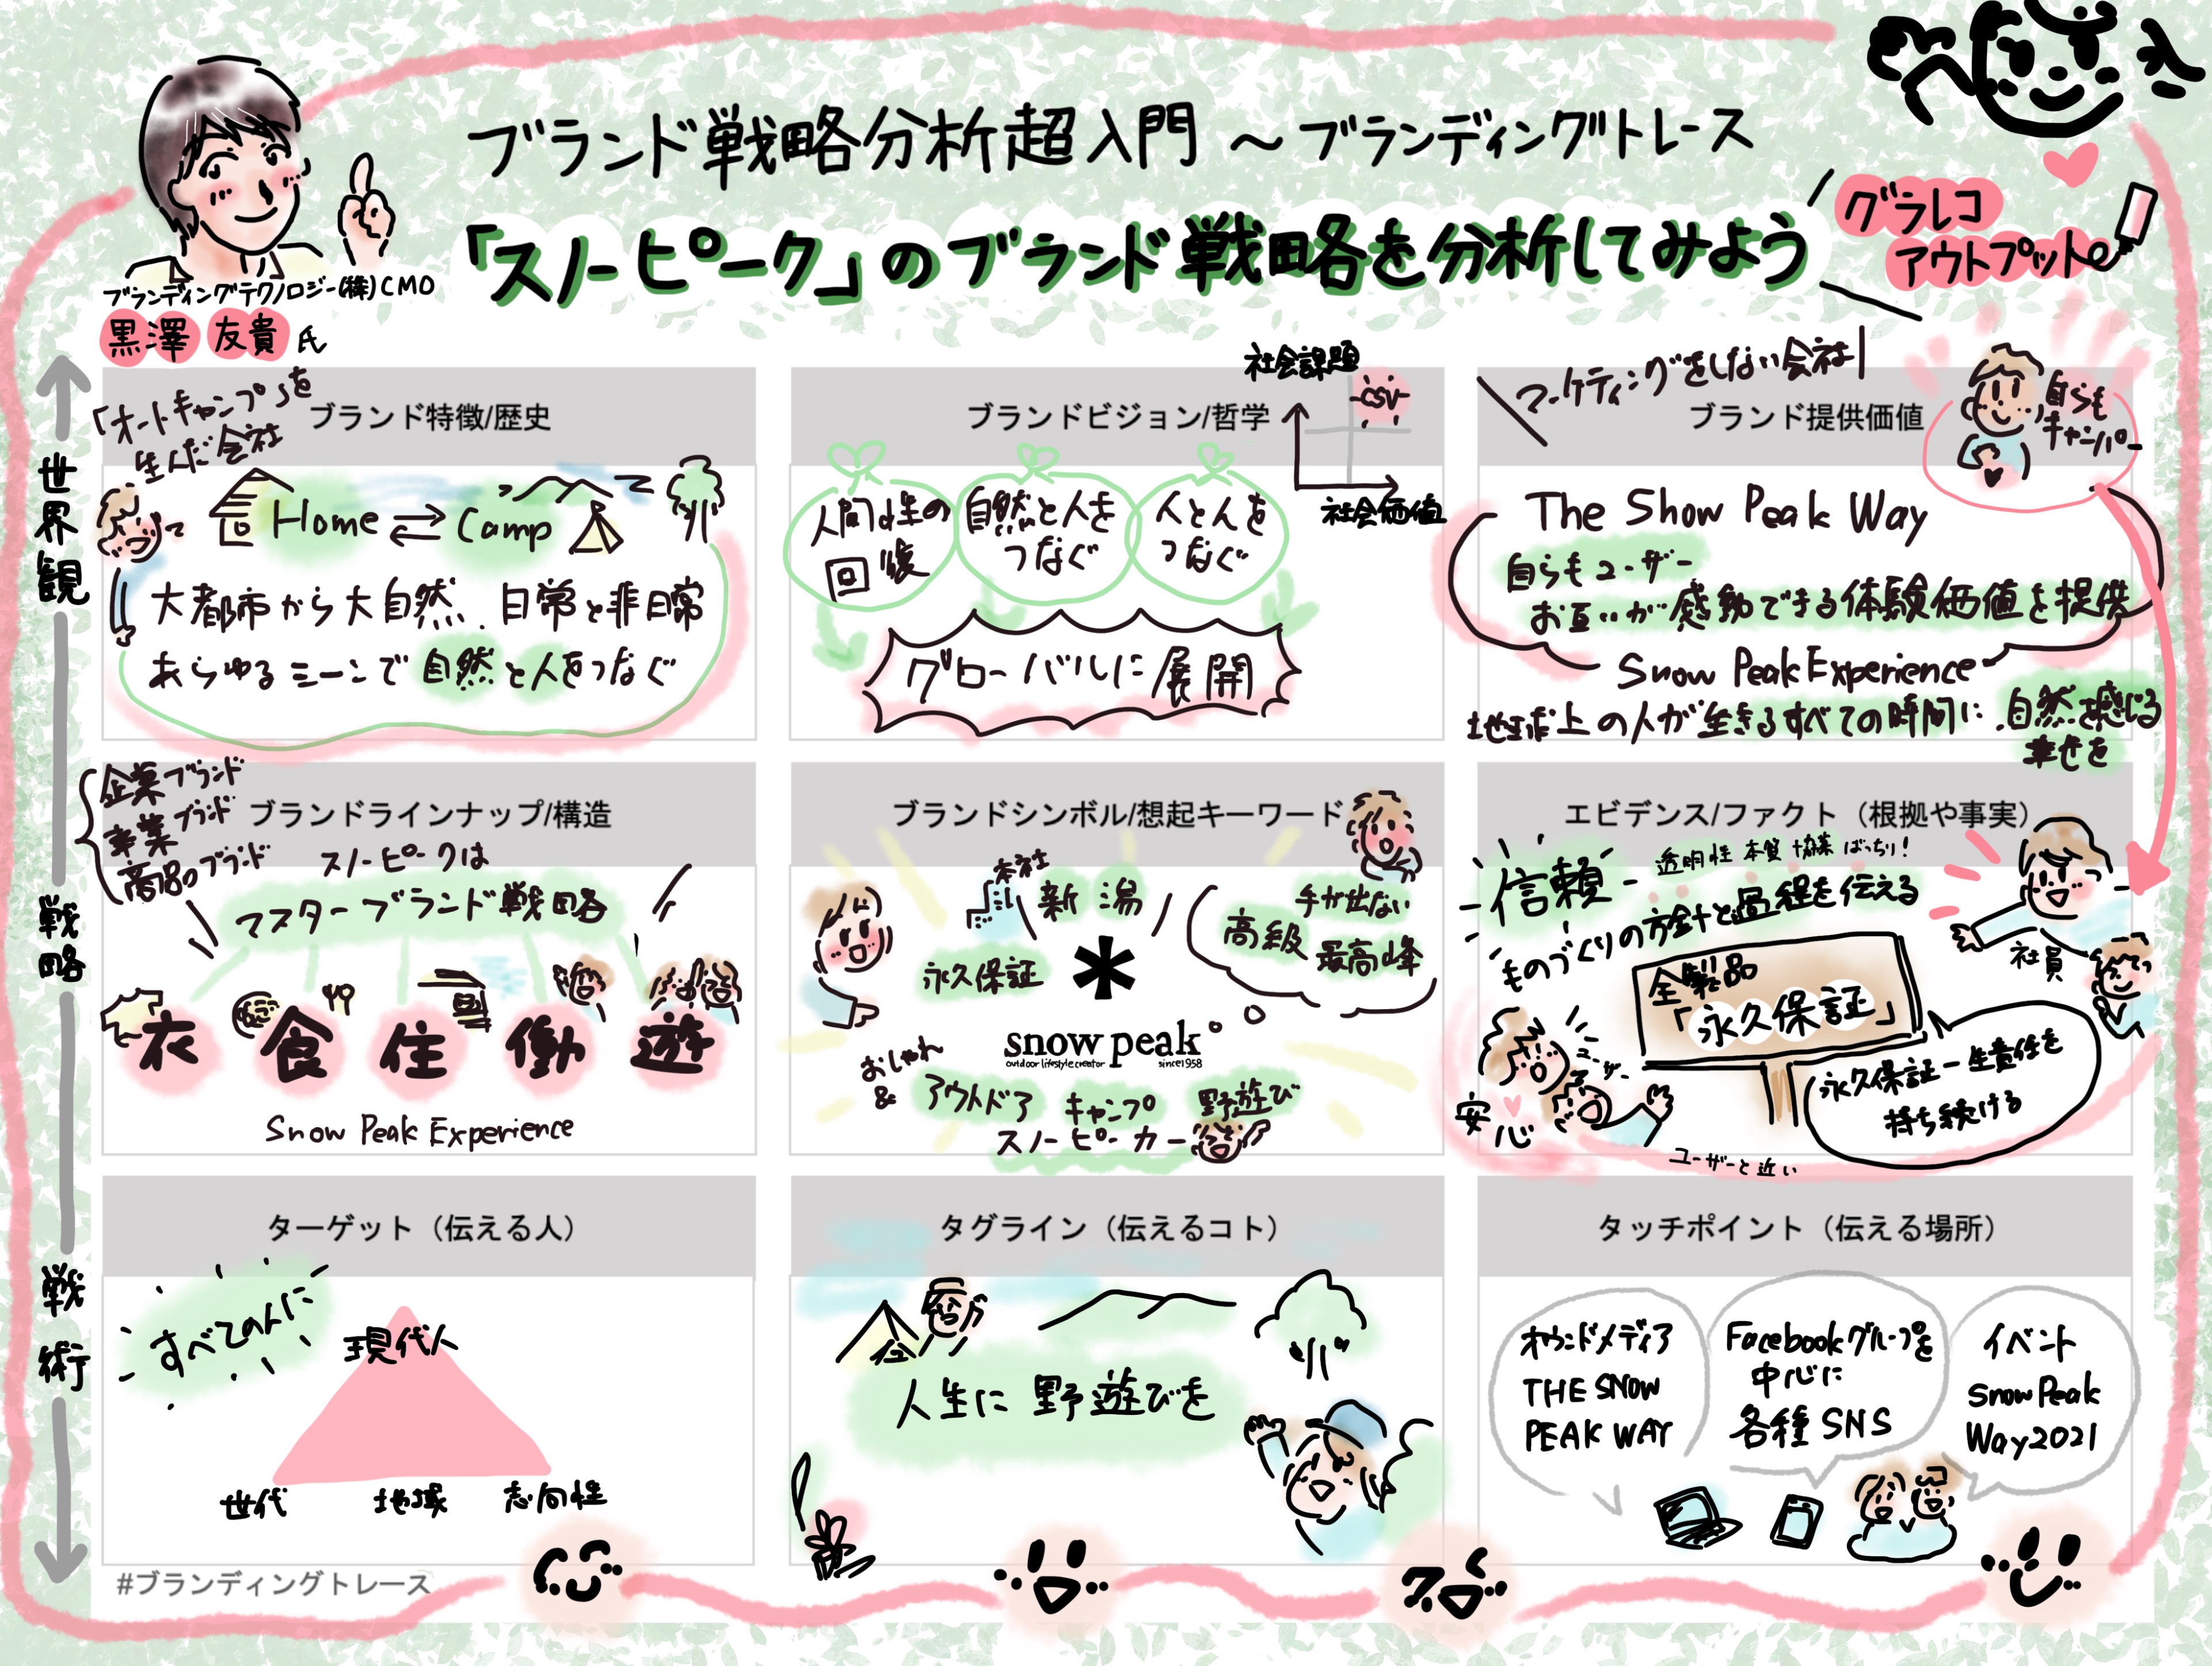 ブランド戦略分析超入門 〜ブランディングトレース
「スノーピーク」のブランド戦略を分析してみよう
グラレコ
アウトプット
ブランディングテクノロジー(株)CMO
黒澤 友貴 氏
世界観
戦略
戦術
「オートキャンプ」を
生んだ会社
ブランド特徴/歴史
Home ⇄ Camp
大都市から大自然、日常と非日常
あらゆるシーンで自然と人をつなぐ
ブランドビジョン/哲学
社会課題
CSV
社会価値
人間性の
回復
自然と人を
つなぐ
人と人を
つなぐ
グローバルに展開
マーケティングをしない会社
ブランド提供価値
自らも
キャンパー
The Snow Peak Way
自らもユーザー
お互いが感動できる体験価値を提供
Snow Peak Experience
地球上の人が生きるすべての時間に、自然を感じる
幸せを
企業ブランド
事業ブランド
商品ブランド
ブランドラインナップ/構造
スノーピークは
マスターブランド戦略
衣 食 住 働 遊
Snow Peak Experience
ブランドシンボル/想起キーワード
本社
新潟
永久保証
手が出ない
高級 最高峰
snow peak
outdoor lifestyle creator since1958
おしゃれ
& アウトドア キャンプ 野遊び
スノーピーカー
エビデンス/ファクト（根拠や事実）
信頼
透明性 本質 協業 ばっちり!
ものづくりの方針と過程を伝える
社員
全製品
「永久保証」
ユーザー
安心
永久保証＝一生責任を
持ち続ける
ユーザーと近い
ターゲット（伝える人）
すべての人に
現代人
世代 地域 志向性
タグライン（伝えるコト）
人生に 野遊びを
タッチポイント（伝える場所）
オウンドメディア
THE SNOW
PEAK WAY
Facebookグループを
中心に
各種SNS
イベント
Snow Peak
Way2021
#ブランディングトレース